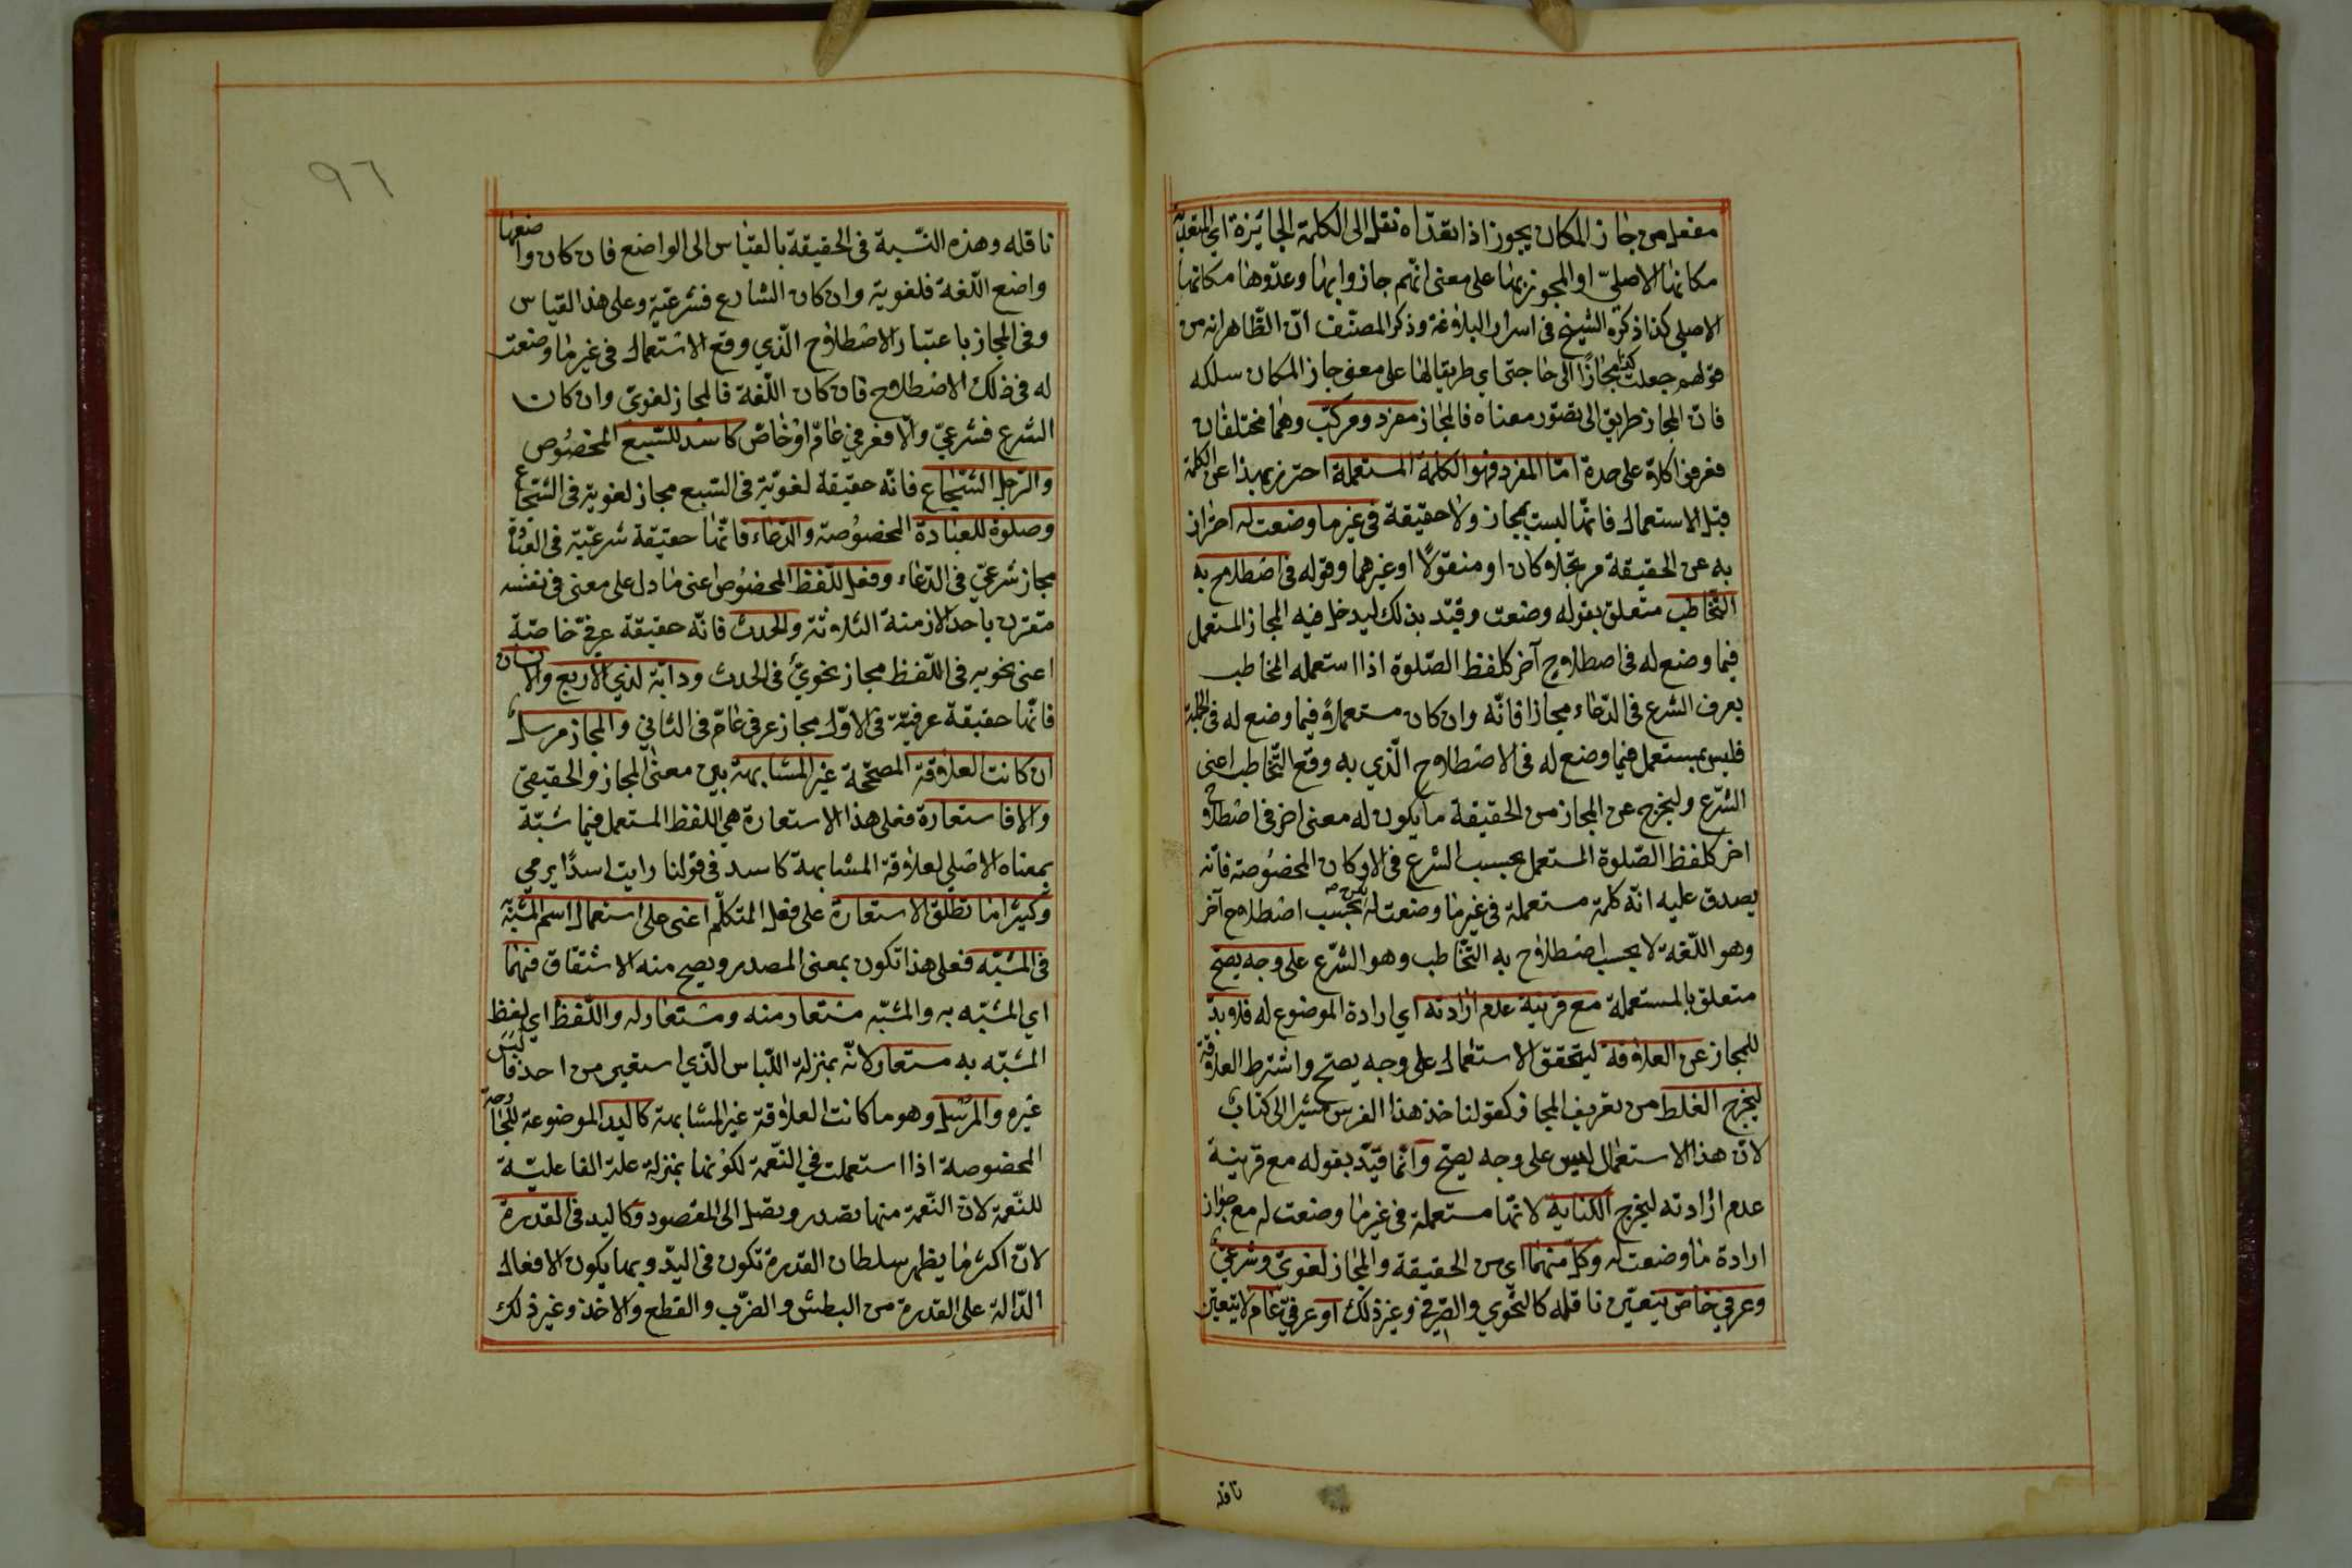 مفعل من جاز المكان يجوز اذا تعداه نقل الى الكلمة الجائزة اي المتعدية
مكانها الاصلي او المجوز بها على معنى انهم جازوا بها وعدوها مكانها
الاصلي كذا ذكره الشيخ في اسرار البلاغة وذكر المصنف ان الظاهر انه من
قولهم جعلت كذا مجازا الى حاجتي اي طريقا لها على معنى جاز المكان سلكه
فان المجاز طريق الى تصور معناه فالمجاز مفرد ومركب وهما مختلفان
فعرفوا كلا على حدة اما المفرد فهو الكلمة المستعملة احترز بهذا عن الكلمة
قبل الاستعمال فانها ليست بمجاز ولا حقيقة في غير ما وضعت له احتراز
به عن الحقيقة مرتجلا كان او منقولا او غيرهما وقوله في اصطلاح به
التخاطب متعلق بقوله وضعت وقيد بذلك ليدخل فيه المجاز المستعمل
فيما وضع له في اصطلاح آخر كلفظ الصلوة اذا استعمله المخاطب
بعرف الشرع في الدعاء مجازا فانه وان كان مستعملا فيما وضع له في الجملة
فليس بمستعمل فيما وضع له في الاصطلاح الذي به وقع التخاطب اعني
الشرع وليخرج عن المجاز من الحقيقة ما يكون له معنى اخر في اصطلاح
اخر كلفظ الصلوة المستعمل بحسب الشرع في الاركان المخصوصة فانه
يصدق عليه انه كلمة مستعملة في غير ما وضعت له لكن بحسب اصطلاح آخر
وهو اللغة لا بحسب اصطلاح به التخاطب وهو الشرع على وجه يصح
متعلق بالمستعملة مع قرينة عدم ارادته اي ارادة الموضوع له فلا بد
للمجاز عن العلاقة ليتحقق الاستعمال على وجه يصح واشترط العلاقة
ليخرج الغلط من تعريف المجاز كقولنا خذ هذا الفرس مشيرا الى كتاب
لان هذا الاستعمال ليس على وجه يصح وانما قيد بقوله مع قرينة
عدم ارادته ليخرج الكناية لانها مستعملة في غير ما وضعت له مع جواز
ارادة ما وضعت له وكل منهما اي من الحقيقة والمجاز لغوي وشرعي
وعرفي خاص يتعين ناقله كالنحوي والصرفي وغير ذلك او عرفي عام لا يتعين
ناقله
٩٦
ناقله وهذه النسبة في الحقيقة بالقياس الى الواضع فان كان واضعها
واضع اللغة فلغوية وان كان الشارع فشرعية وعلى هذا القياس
وفي المجاز باعتبار الاصطلاح الذي وقع الاستعمال في غير ما وضعت
له في ذلك الاصطلاح فان كان اللغة فالمجاز لغوي وان كان
الشرع فشرعي والا فعرفي عام او خاص كاسد للسبع المخصوص
والرجل الشجاع فانه حقيقة لغوية في السبع مجاز لغوية في الشجاع
وصلوة للعبادة المخصوصة والدعاء فانها حقيقة شرعية في العبادة
مجاز شرعي في الدعاء وفعل للفظ المخصوص اعني ما دل على معنى في نفسه
مقترن باحد الازمنة الثلاثة والحدث فانه حقيقة عرفي خاصة
اعني نحوية في اللفظ مجاز نحوي في الحدث ودابة لذي الاربع والانسان
فانها حقيقة عرفية في الاول مجاز عرفي عام في الثاني والمجاز مرسل
ان كانت العلاقة المصححة غير المشابهة بين معنى المجاز والحقيقي
والا فاستعارة فعلى هذا الاستعارة هي اللفظ المستعمل فيما شبه
بمعناه الاصلي لعلاقة المشابهة كاسد في قولنا رايت اسدا يرمي
وكثيرا ما تطلق الاستعارة على فعل المتكلم اعني على استعمال اسم المشبه به
في المشبه فعلى هذا تكون بمعنى المصدر ويصح منه الاشتقاق فهما
اي المشبه به والمشبه مستعار منه ومستعار له واللفظ اي لفظ
المشبه به مستعار لانه بمنزلة اللباس الذي استعير من احد فالبس
غيره والمرسل وهو ما كانت العلاقة غير المشابهة كاليد الموضوعة للجارحة
المخصوصة اذا استعملت في النعمة لكونها بمنزلة علة الفاعلية
للنعمة لان النعمة منها تصدر وتصل الى المقصود وكاليد في القدرة
لان اكثر ما يظهر سلطان القدرة تكون في اليد وبها يكون الافعال
الدالة على القدرة من البطش والضرب والقطع والاخذ وغير ذلك